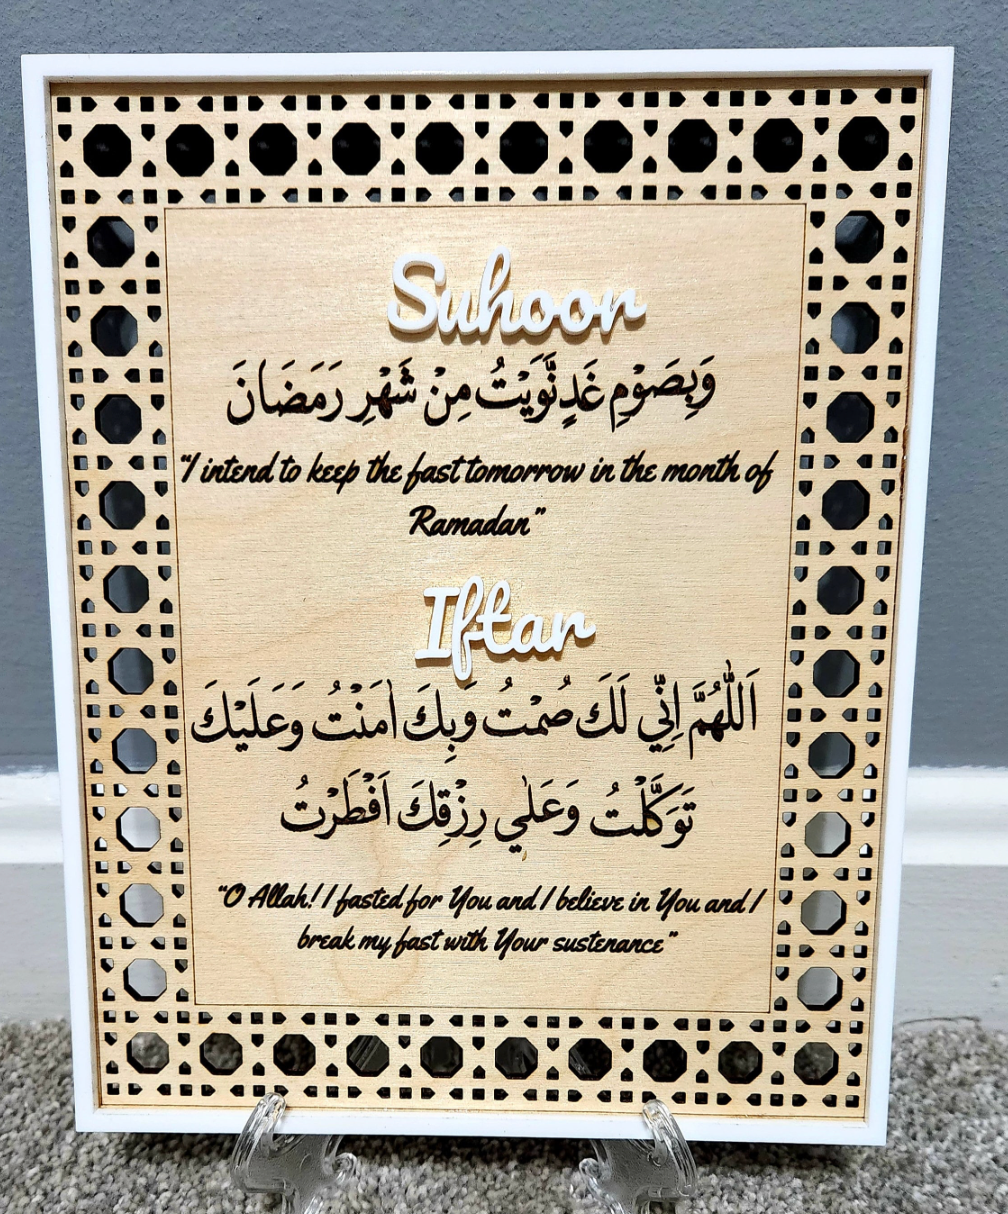 Suhoor
وَبِصَوْمِ غَدٍنَّوَيْتُ مِنْ شَهْرِ رَمَضَانَ
"I intend to keep the fast tomorrow in the month of
Ramadan"
Iftar
اَللّٰهُمَّ اِنِّي لَكَ صُمْتُ وَبِكَ اٰمَنْتُ وَعَلَيْكَ
تَوَكَّلْتُ وَعَلٰي رِزْقِكَ اَفْطَرْتُ
"O Allah! I fasted for You and I believe in You and I
break my fast with Your sustenance"